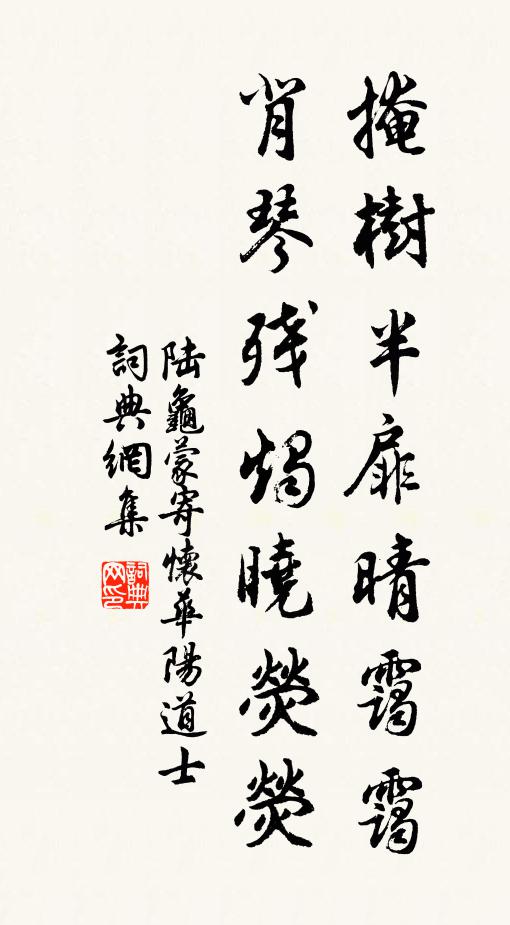 掩樹半扉晴靄靄
背琴残燭曉熒熒
陸龜蒙寄懷華陽道士
詞典網集
詞典
网印